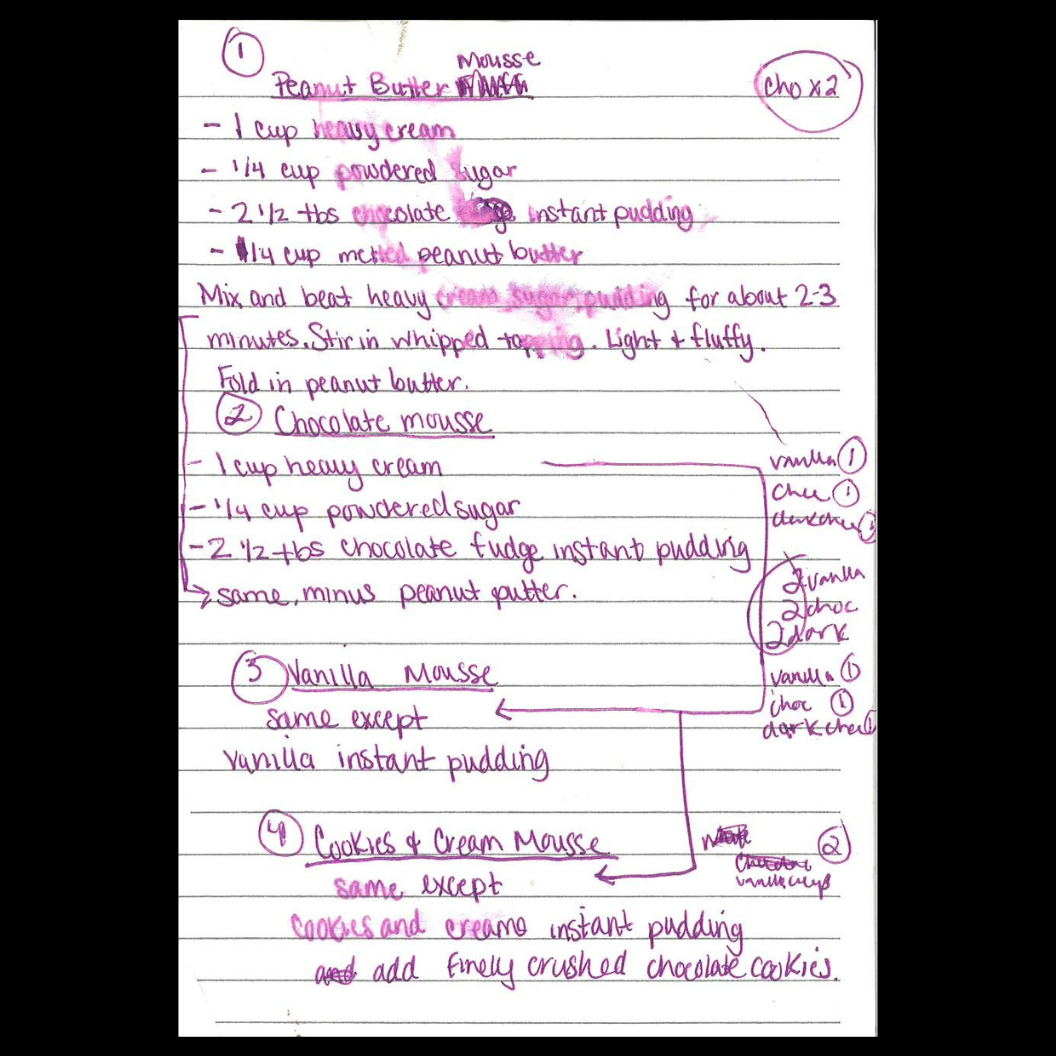 1
Mousse
Peanut Butter
cho x2
- 1 cup heavy cream
- 1/4 cup powdered sugar
- 2 1/2 tbs chocolate instant pudding
- 1/4 cup melted peanut butter
Mix and beat heavy cream sugar, pudding for about 2-3
minutes. Stir in whipped topping. Light + fluffy.
Fold in peanut butter.
2 Chocolate mousse
- 1 cup heavy cream
vanilla 1
- 1/4 cup powdered sugar
- 2 1/2 tbs chocolate fudge instant pudding
same, minus peanut putter.
2 vanilla
2 choc
2 dark
3 Vanilla Mousse
vanilla 1
same except
choc 1
vanilla instant pudding
4 Cookies & Cream Mousse
2
same except
cookies and creame instant pudding
add finely crushed chocolate cookies.